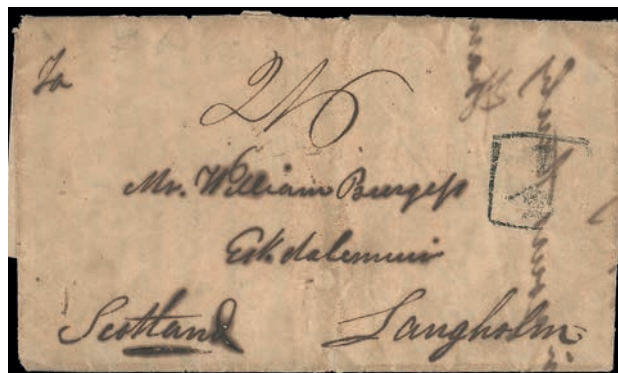 To
2/6
Mr. William Burgess
Eskdalemuir
Scotland Langholm